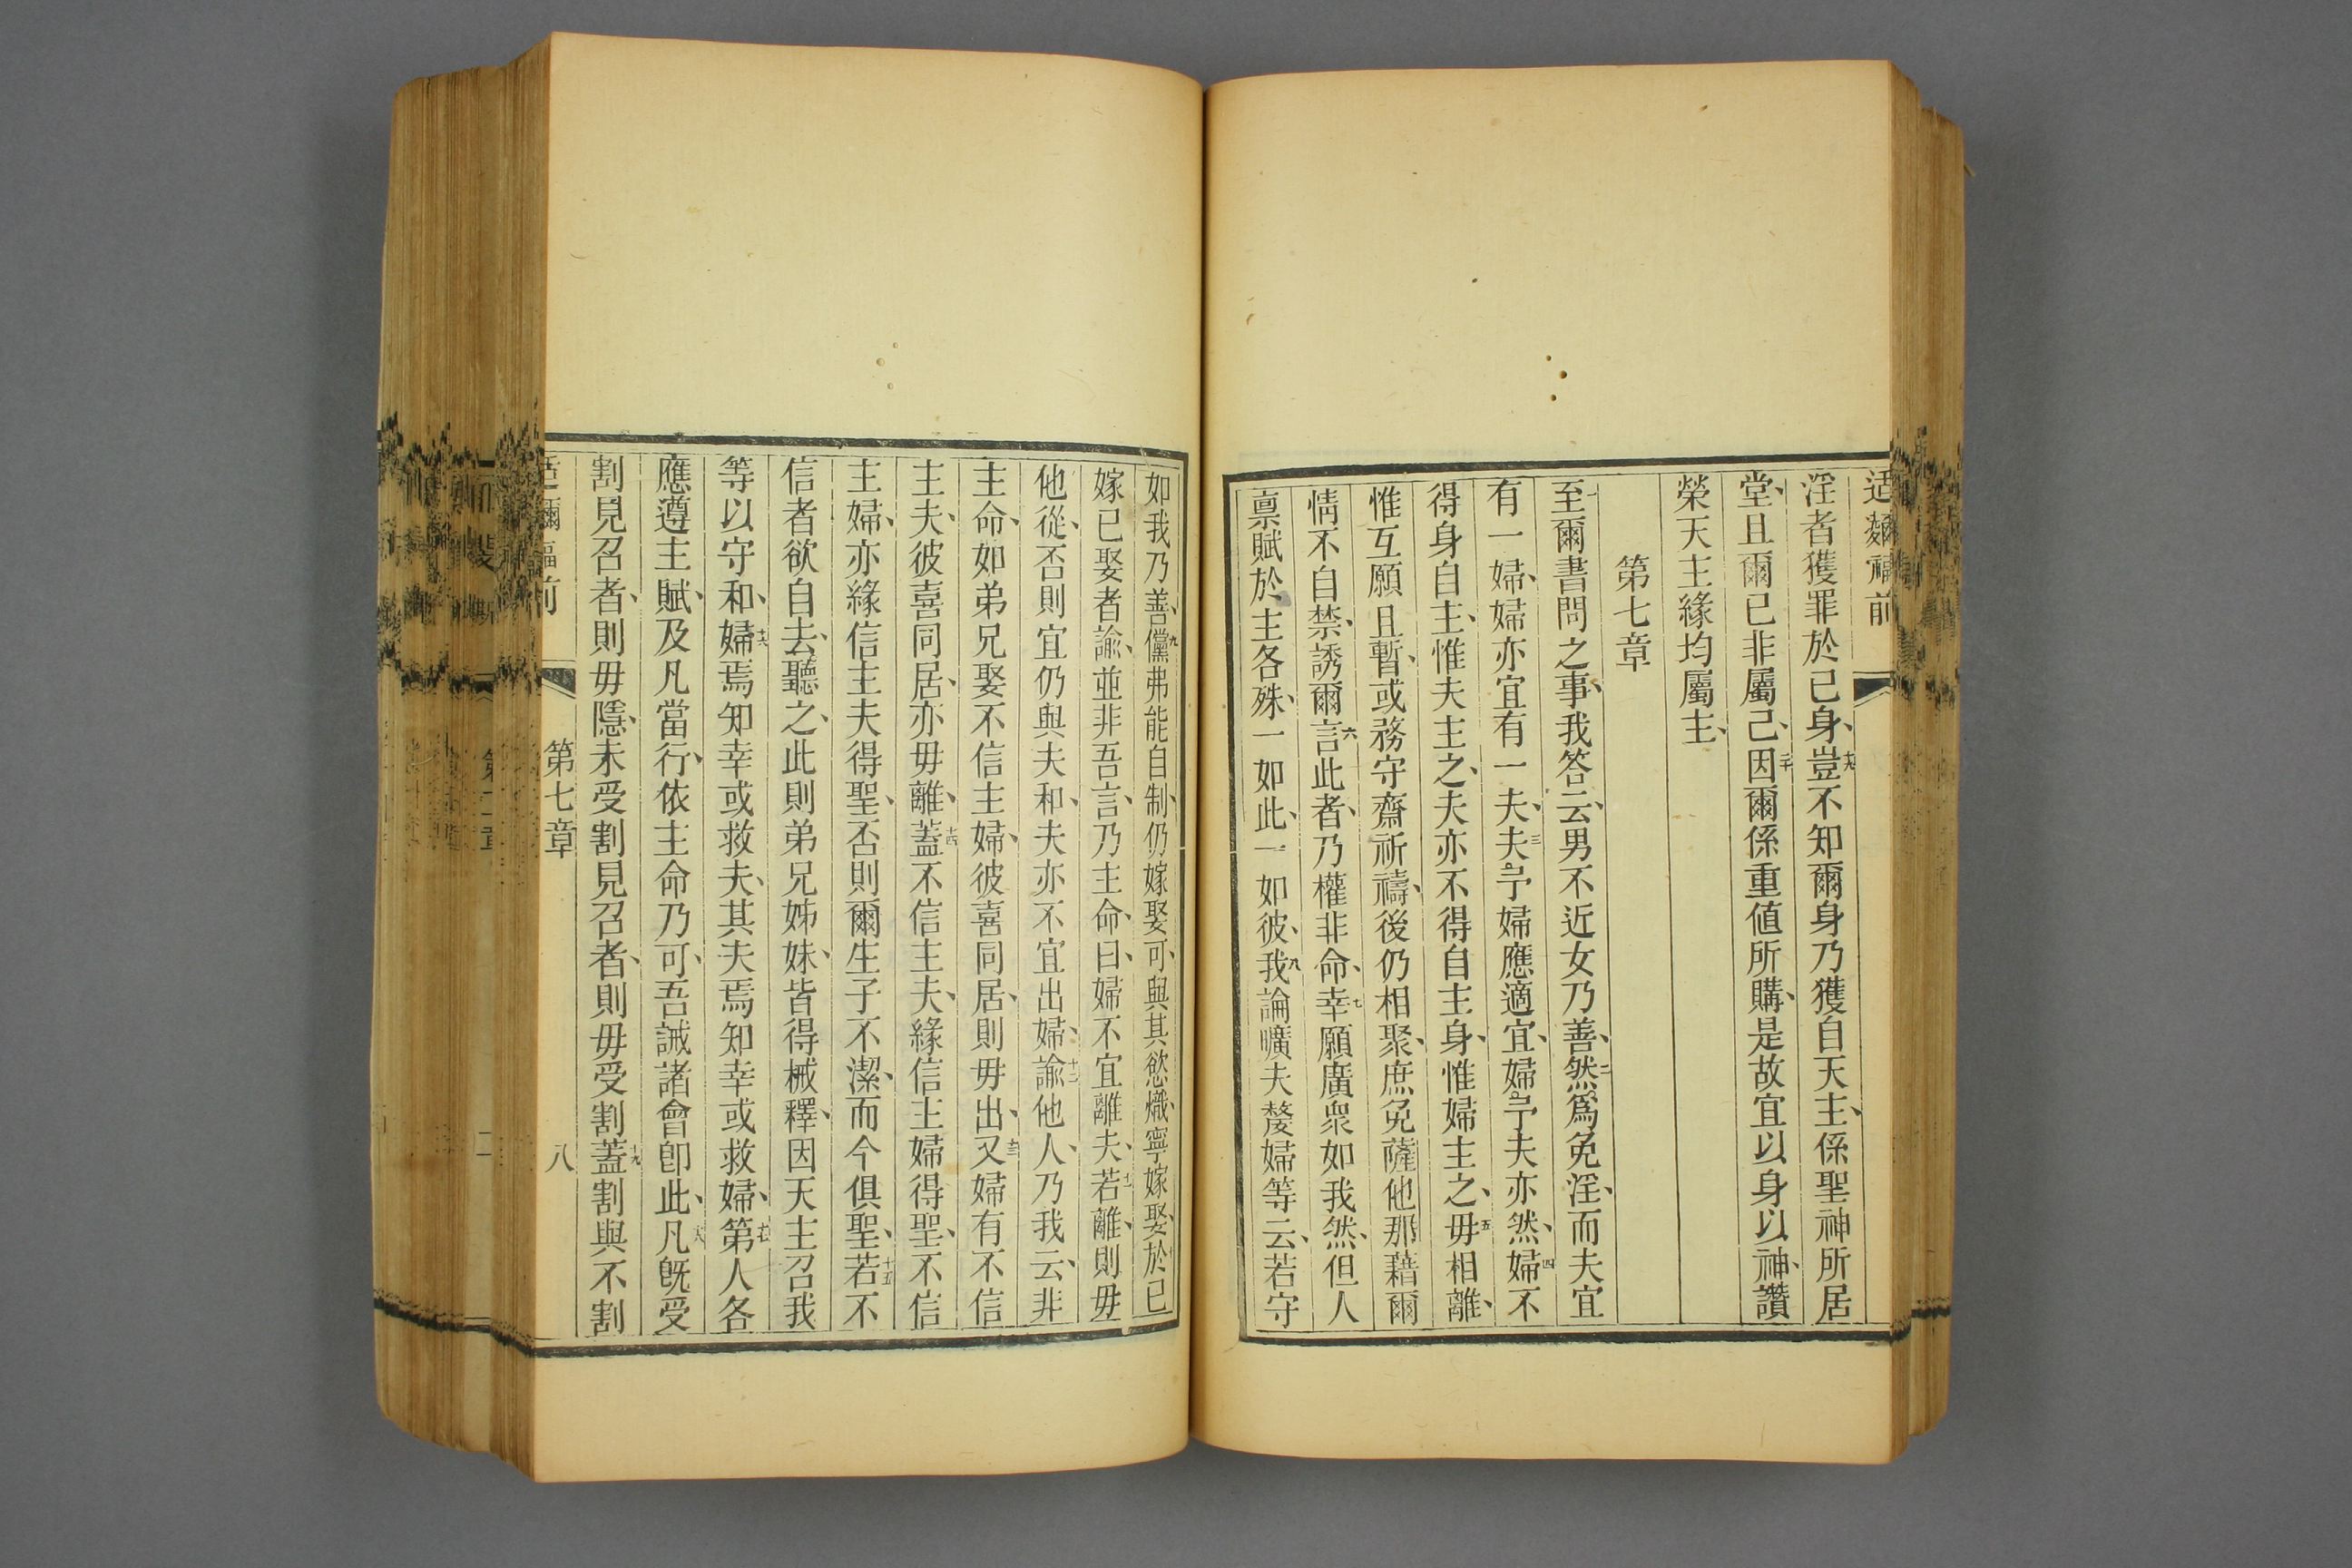 适 前
淫者獲罪於己身、十九豈不知爾身乃獲自天主、係聖神所居
堂、且爾已非屬己、二十因爾係重值所購、是故宜以身以神、讚
榮天主緣均屬主、
第七章
一至爾書問之事、我答云、男不近女乃善、二然爲免淫、而夫宜
有一婦、婦亦宜有一夫、三夫予婦應適宜、婦予夫亦然、四婦不
得身自主、惟夫主之、夫亦不得自主身、惟婦主之、五毋相離、
惟互願且暫、或務守齋祈禱、後仍相聚、庶免薩他那藉爾
情不自禁、誘爾六言此者、乃權非命、七幸願廣衆如我然、但人
禀賦於主各殊、一如此、一如彼、八我論曠夫嫠婦等云、若守
如我乃善、九儻弗能自制、仍嫁娶可、與其慾熾、寧嫁娶、於已
嫁已娶者諭、並非吾言、乃主命、曰、婦不宜離夫、十一若離、則毋
他從、否則宜仍與夫和、夫亦不宜出婦、十二諭他人、乃我云、非
主命、如弟兄娶不信主婦、彼喜同居、則毋出、十三又婦有不信
主夫、彼喜同居、亦毋離、十四蓋不信主夫、緣信主婦得聖、不信
主婦、亦緣信主夫得聖、否則爾生子不潔、而今俱聖、十五若不
信者欲自去、聽之、此則弟兄姊妹、皆得械釋、因天主召我
等以守和、十六婦焉知幸或救夫、其夫焉知幸或救婦、十七第人各
應遵主賦、及凡當行、依主命乃可、吾誡諸會卽此、十八凡旣受
割見召者、則毋隱、未受割見召者、則毋受割、十九蓋割與不割
爾 前 第七章 八